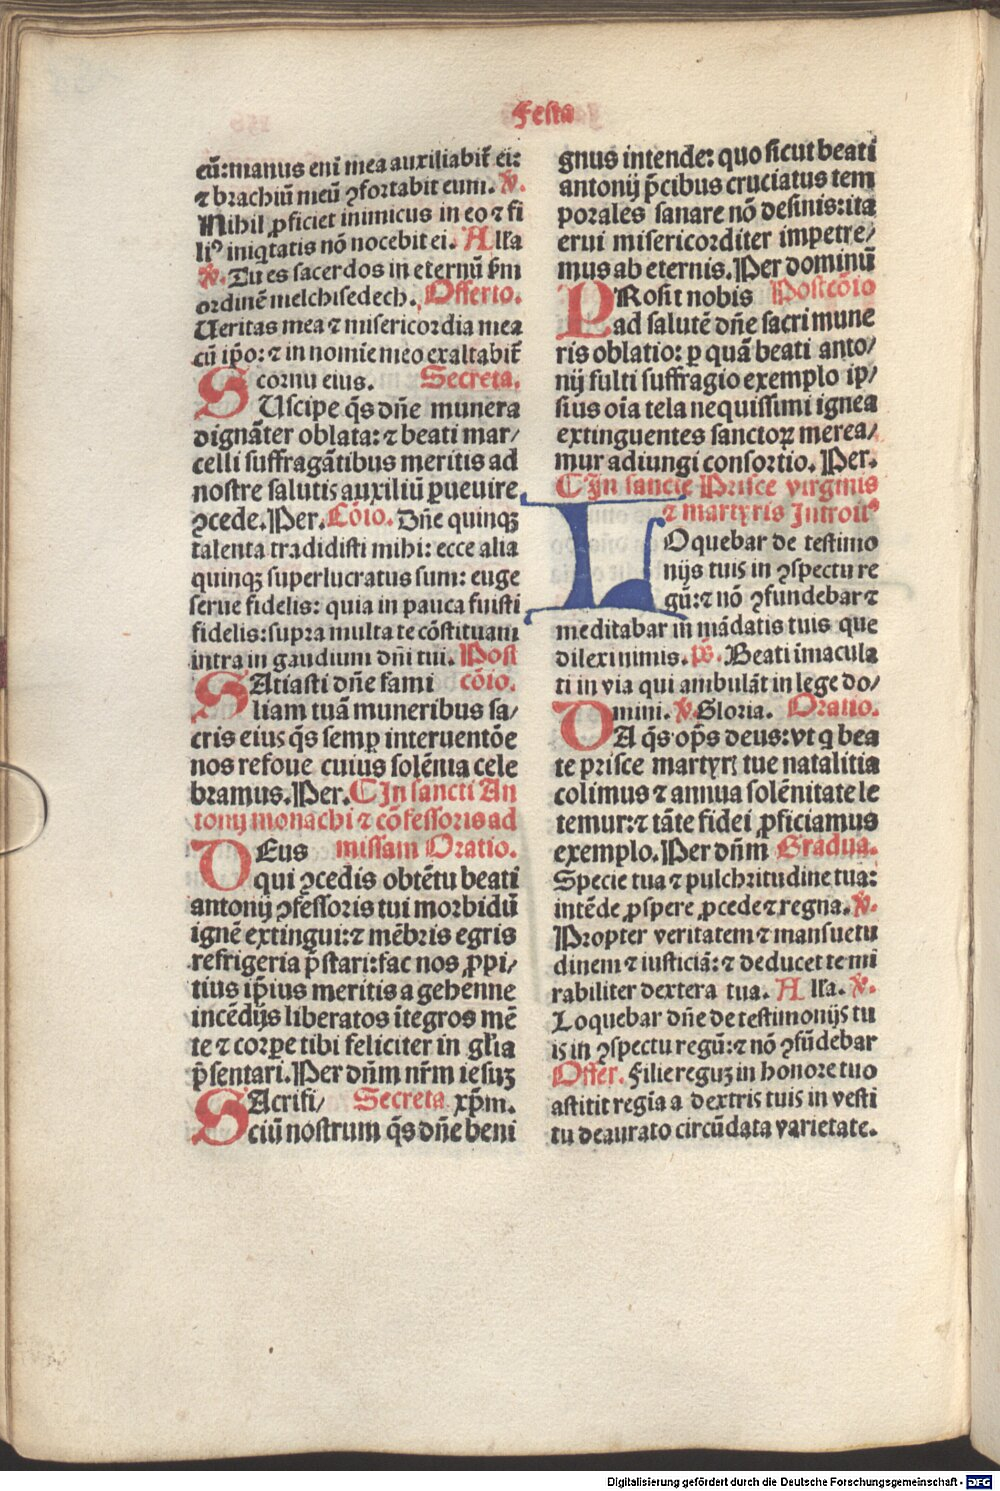 Festa
eū: manus eni mea auxiliabit̄ ei:
⁊ brachiū meū ꝯfortabit eum. ℣.
Nihil ꝓficiet inimicus in eo ⁊ fi
liꝰ iniq̇tatis nō nocebit ei. Alľa
℣. Tu es sacerdos in eternū ẜm
ordinē melchisedech. Offerto.
Ueritas mea ⁊ misericordia mea
cū ip̄o: ⁊ in nomīe meo exaltabit̄
cornu eius. Secreta.
SUscipe q̄s dn̄e munera
dignāter oblata: ⁊ beati mar/
celli suffragātibus meritis ad
nostre salutis auxiliū ꝓueuire
ꝯcede. Per. Cōio. Dn̄e quinqꝫ
talenta tradidisti mihi: ecce alia
quinqꝫ superlucratus sum: euge
serue fidelis: quia in pauca fuisti
fidelis: supra multa te cōstituam
intra in gaudium dn̄i tui. Post
SAtiasti dn̄e fami cōio.
liam tuā muneribus sa/
cris eius q̄s semꝑ interuentōe
nos refoue cuius solēnia cele
bramus. Per. ¶ In sancti An
tonij monachi ⁊ cōfessoris ad
DEus missam Oratio.
qui ꝯcedis obtētu beati
antonij ꝯfessoris tui morbidū
ignē extingui: ⁊ mēbris egris
refrigeria p̄stari: fac nos ꝓpi/
tius ip̄ius meritis a gehenne
incēdijs liberatos ītegros mē
te ⁊ corꝑe tibi feliciter in gl̄ia
p̄sentari. Per dn̄m nr̄m iesuꝫ
SAcrifi/ Secreta xp̄m.
ciū nostrum q̄s dn̄e beni
gnus intende: quo sicut beati
antonij p̄cibus cruciatus tem
porales sanare nō desinis: ita
erui misericorditer impetre/
mus ab eternis. Per dominū
PRosit nobis Postcōio
ad salutē dn̄e sacri mune
ris oblatio: ꝑ quā beati anto/
nij fulti suffragio exemplo ip/
sius oīa tela nequissimi ignea
extinguentes sanctoꝝ merea/
mur adiungi consortio. Per.
¶ In sancte Prisce virginis
⁊ martyris Introitꝰ
LOquebar de testimo
nijs tuis in ꝯspectu re
gū: ⁊ nō ꝯfundebar ⁊
meditabar in mādatis tuis que
dilexi nimis. p̄s. Beati īmacula
ti in via qui ambulāt in lege do/
mini. ℣. Gloria. Oratio.
DA q̄s op̄s deus: vt q̇ bea
te prisce martyrꝭ tue natalitia
colimus ⁊ annua solēnitate le
temur: ⁊ tāte fidei ꝓficiamus
exemplo. Per dn̄m Gradua.
Specie tua ⁊ pulchritudine tua:
intēde ꝓspere ꝓcede ⁊ regna. ℣.
Propter veritatem ⁊ mansuetu
dinem ⁊ iusticiā: ⁊ deducet te mi
rabiliter dextera tua. Alľa. ℣.
Loquebar dn̄e de testimonijs tu
is in ꝯspectu regū: ⁊ nō ꝯfūdebar
Offer. Filie reguꝫ in honore tuo
astitit regīa a dextris tuis in vesti
tu deaurato circūdata varietate.
Digitalisierung gefördert durch die Deutsche Forschungsgemeinschaft - DFG